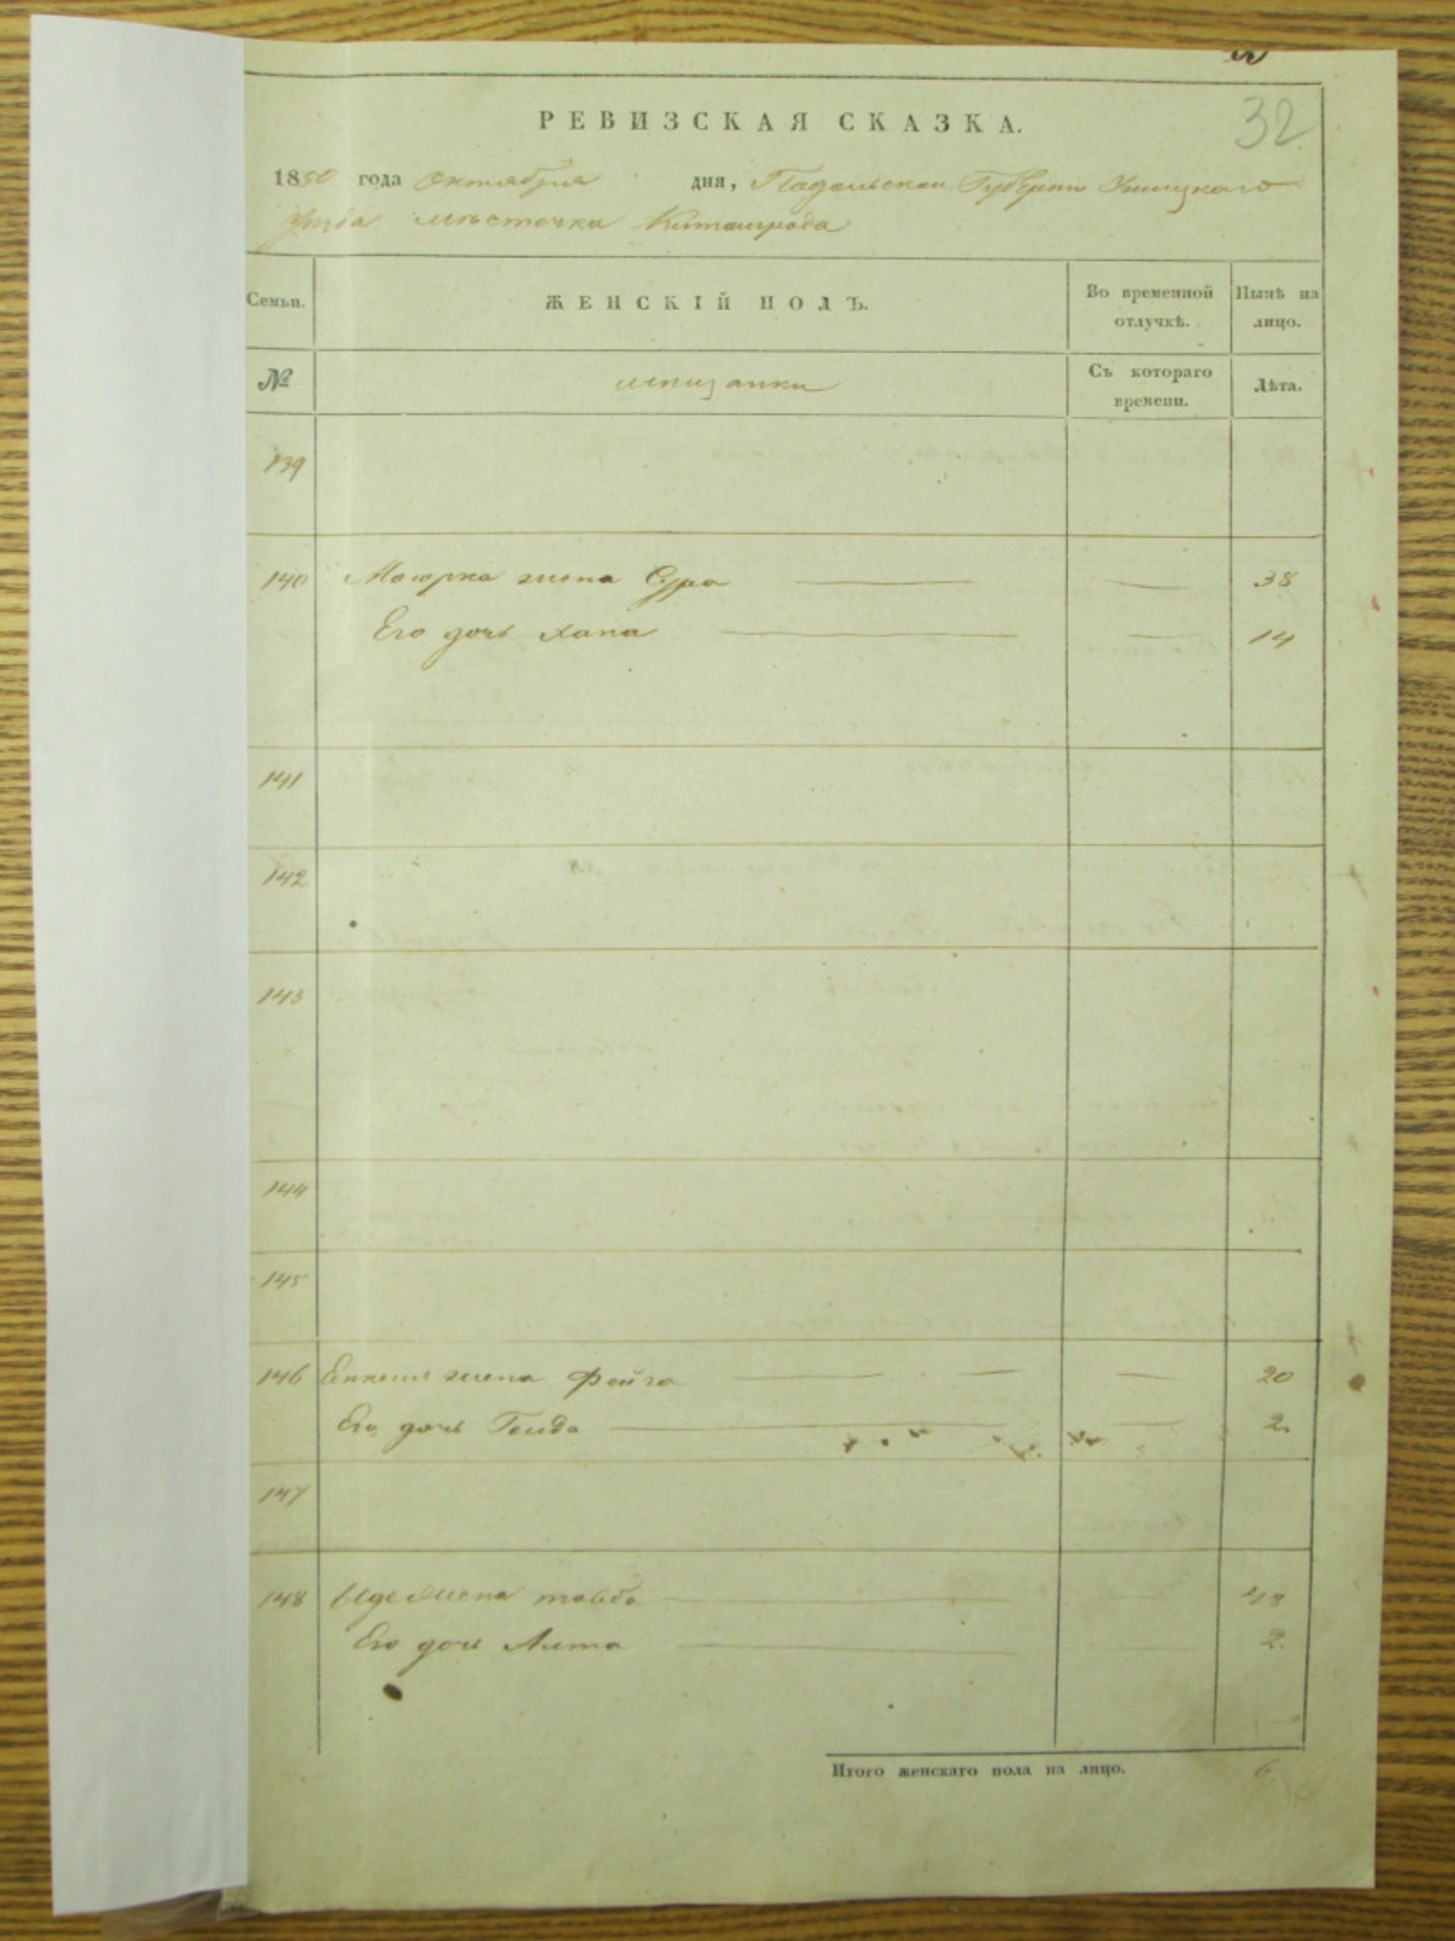 32
РЕВИЗСКАЯ СКАЗКА.
1850 года октября дня, Подольской Губернии Ушицкаго
уезда местечка Китайгрода
Семьи.
ЖЕНСКІЙ ПОЛЪ.
Во временной отлучкѣ.
Нынѣ на лицо.
№
мещанки
Съ котораго времени.
Лѣта.
139
140 жена Сура 38
Его дочь Хана 14
141
142
143
144
145
146 жена Фейга 20
Его дочь 2.
147
148 жена 43
Его дочь 2.
Итого женскаго пола на лицо. 6